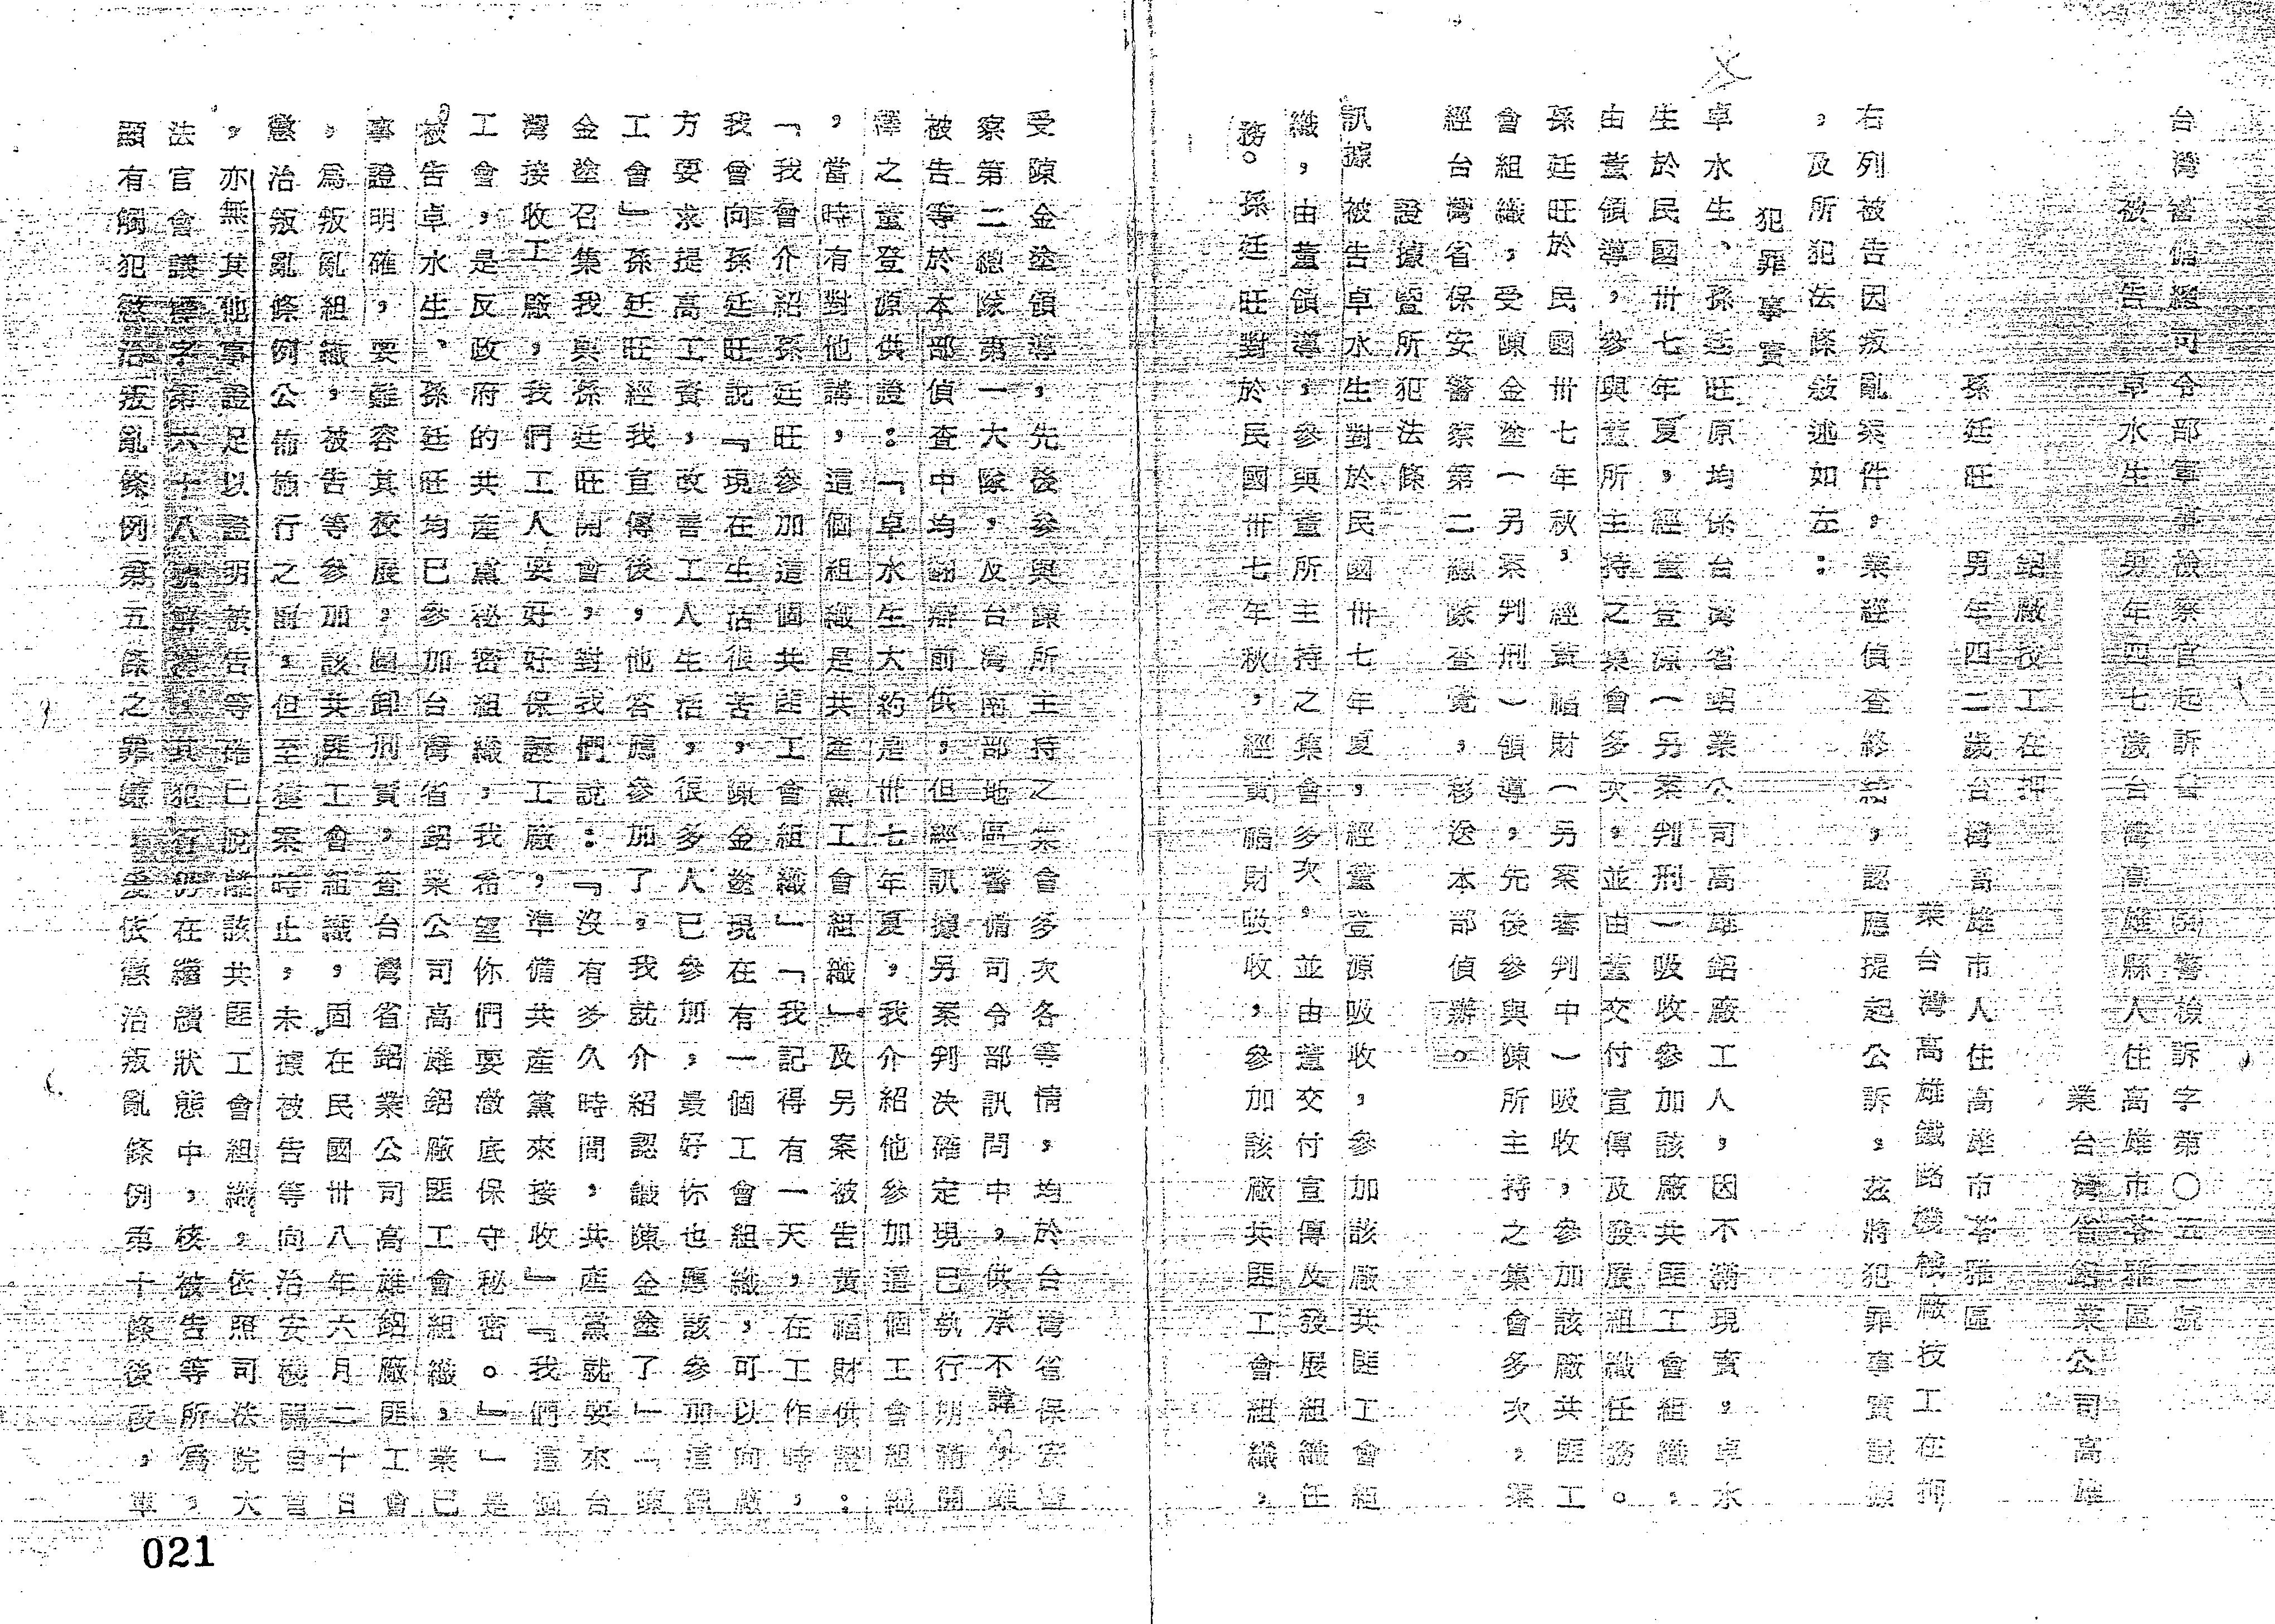 台灣警備總司令部軍事檢察官起訴書　警檢訴字第〇五二號
被告　卓水生　男年四七歲台灣高雄縣人住高雄市苓雅區
業台灣省鋁業公司高雄
鋁廠技工在押
孫廷旺　男年四二歲台灣高雄市人住高雄市苓雅區
業台灣高雄鐵路機械廠技工在押
右列被告因叛亂案件，業經偵查終結，認應提起公訴。茲將犯罪事實證據
，及所犯法條敍述如左：
犯罪事實
卓水生、孫廷旺原均係台灣省鋁業公司高雄鋁廠工人，因不滿現實，卓水
生於民國卅七年夏，經董登源（另案判刑）吸收參加該廠共匪工會組織，
由董領導，參與董所主持之集會多次，並由董交付宣傳及發展組織任務。
孫廷旺於民國卅七年秋，經黃福財（另案審判中）吸收，參加該廠共匪工
會組織，受陳金塗（另案判刑）領導，先後參與陳所主持之集會多次，案
經台灣省保安警察第二總隊查覺，移送本部偵辦。
證據暨所犯法條
訊據被告卓水生對於民國卅七年夏，經董登源吸收，參加該廠共匪工會組
織，由董領導，參與董所主持之集會多次，並由董交付宣傳及發展組織任
務。孫廷旺對於民國卅七年秋，經黃福財吸收，參加該廠共匪工會組織，
受陳金塗領導，先後參與陳所主持之集會多次各等情，均於台灣省保安警
察第二總隊第一大隊，及台灣南部地區警備司令部訊問中，供承不諱，雖
被告等於本部偵查中均翻辯前供，但經訊據另案判決確定現已執行期滿開
釋之董登源供證：「卓水生大約是卅七年夏，我介紹他參加這個工會組織
，當時有對他講，這個組織是共產黨工會組織」及另案被告黃福財供證：
「我會介紹孫廷旺參加這個共匪工會組織」「我記得有一天，在工作時，
我曾向孫廷旺說『現在生活很苦，陳金塗現在有一個工會組織，可以向廠
方要求提高工資，改善工人生活，很多人已參加，最好你也應該參加這個
工會』孫廷旺經我宣傳後，他答應參加了。我就介紹認識陳金塗了」「陳
金塗召集我與孫廷旺開會，對我們說：『沒有多久時間，共產黨就要來台
灣接收工廠，我們工人要好好保護工廠，準備共產黨來接收』『我們這個
工會，是反政府的共產黨秘密組織，我希望你們要澈底保守秘密。』」是
被告卓水生、孫廷旺均已參加台灣省鋁業公司高雄鋁廠匪工會組織，業已
事證明確，要難容其狡展，圖卸刑責，查台灣省鋁業公司高雄鋁廠匪工會
，為叛亂組織，被告等參加該共匪工會組織，固在民國卅八年六月二十日
懲治叛亂條例公佈施行之前，但至獲案時止，未據被告等向治安機關自首
，亦無其他事證足以證明被告等確已脫離該共匪工會組織，依照司法院大
法官會議釋字第六十八號解釋，其犯行仍在繼續狀態中，核被告等所為，
顯有觸犯懲治叛亂條例第五條之罪嫌，爰依懲治叛亂條例第十條後段，軍
021